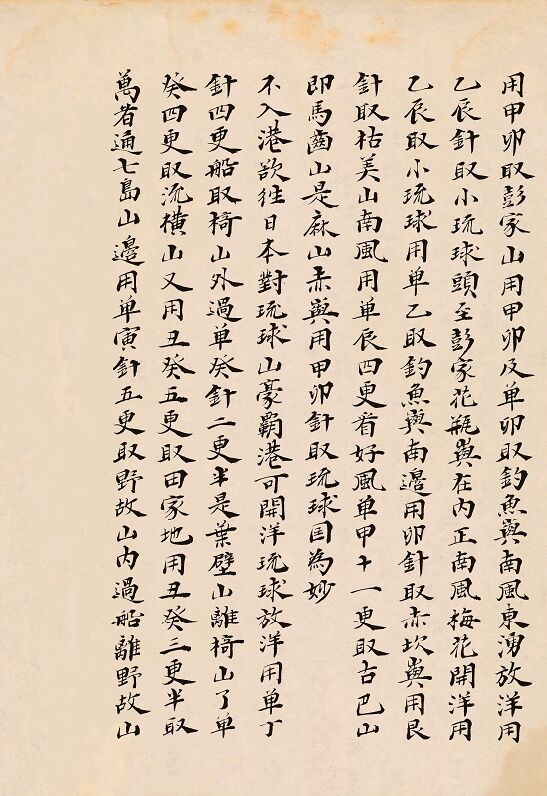 用甲卯取彭家山用甲卯及单卯取釣魚嶼南風東湧放洋用
乙辰針取小琉球頭至彭家花瓶嶼在内正南風梅花開洋用
乙辰取小琉球用单乙取釣魚嶼南邊用卯針取赤坎嶼用艮
針取枯美山南風用单辰四更看好風单甲十一更取古巴山
即馬齒山是麻山赤嶼用甲卯針取琉球国為妙
不入港欲往日本對琉球山豪霸港可開洋琉球放洋用单丁
針四更船取椅山外過单癸針二更半是葉壁山離椅山了单
癸四更取流横山又用丑癸五更取田家地用丑癸三更半取
萬者通七島山邊用单寅針五更取野故山内過船離野故山